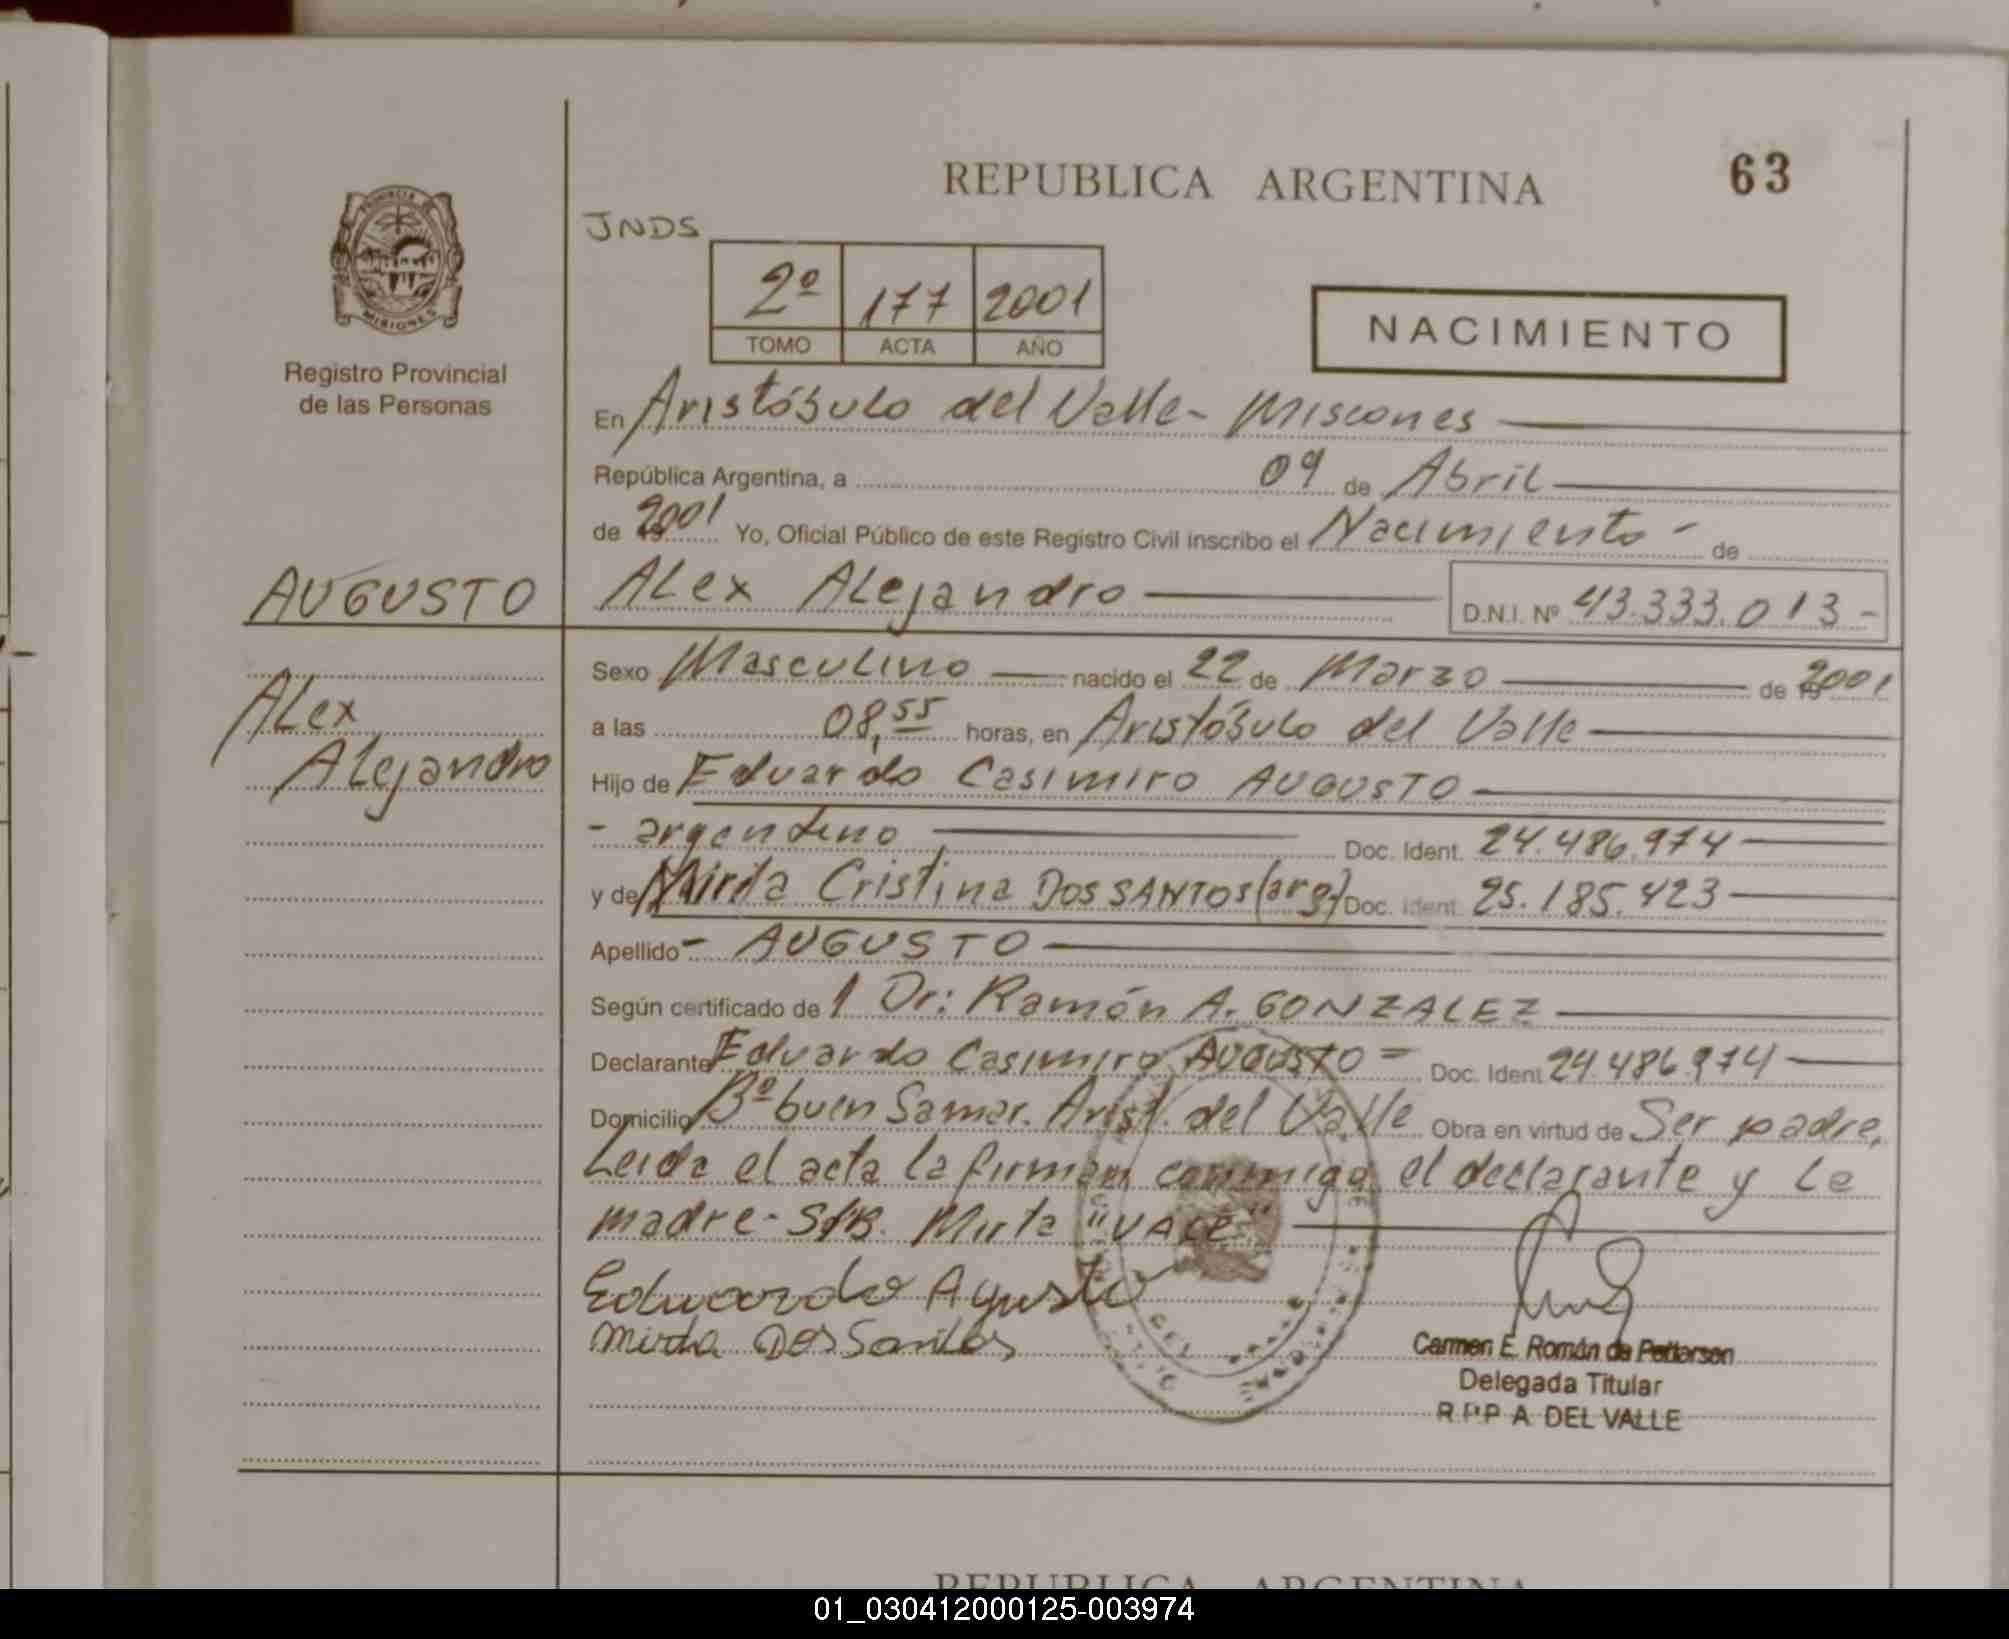 REPUBLICA ARGENTINA
63
PROVINCIA DE
MISIONES
Registro Provincial
de las Personas
JNDS
2º 177 2001
TOMO ACTA AÑO
NACIMIENTO
En Aristóbulo del Valle - Misiones
República Argentina, a 09 de Abril
de 2001 Yo, Oficial Público de este Registro Civil inscribo el Nacimiento - de
AUGUSTO
Alex Alejandro D.N.I. Nº 43.333.013-
Alex
Alejandro
Sexo Masculino nacido el 22 de Marzo de 2001
a las 08,55 horas, en Aristóbulo del Valle
Hijo de Eduardo Casimiro AUGUSTO
- argentino Doc. Ident. 24.486.974
y de Mirta Cristina DOS SANTOS (arg.) Doc. Ident. 25.185.423
Apellido - AUGUSTO
Según certificado de 1 Dr: Ramón A. GONZALEZ
Declarante Eduardo Casimiro AUGUSTO = Doc. Ident. 24.486.974
Domicilio Bº buen Samar. Arist. del Valle Obra en virtud de Ser padre.
Leida el acta la firman conmigo el declarante y la
madre - S/R. Mirta "VALE"
Eduardo Agusto
Mirta Dos Santos
Carmen E. Román de Petterson
Delegada Titular
R.P.P A. DEL VALLE
REPUBLICA ARGENTINA
01_030412000125-003974